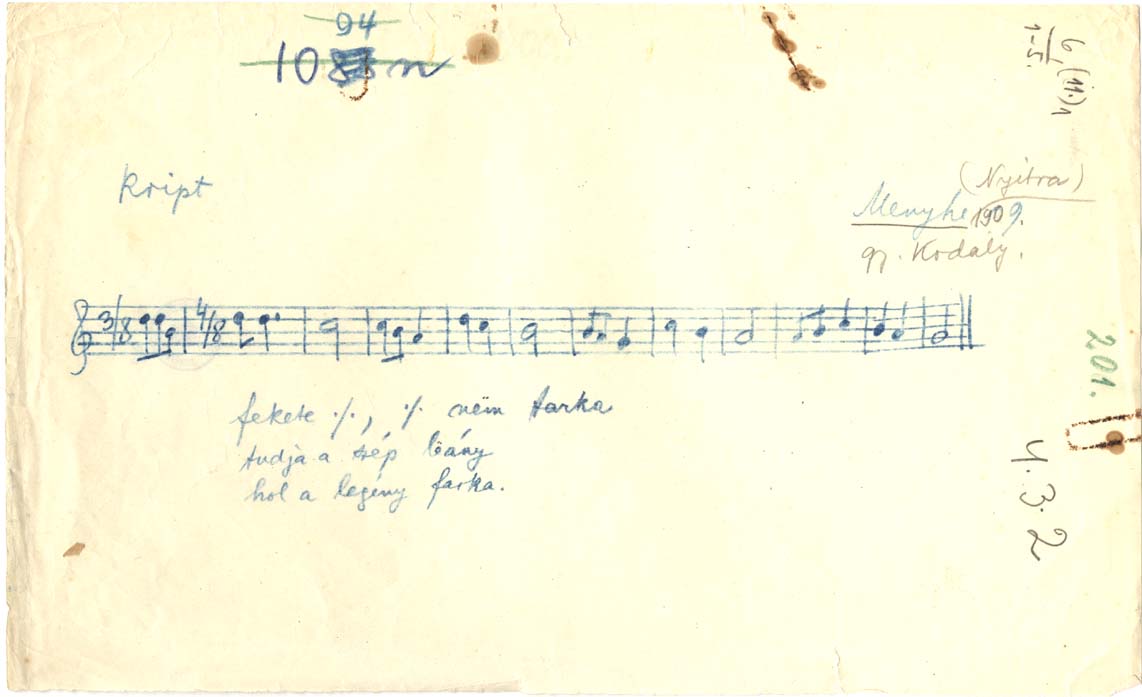 94
10 n
6 (11.)1
1-5.
kript
(Nyitra)
Menyhe 1909.
gy. Kodály.
3/8 4/8
201.
fekete ·/·, ·/· nëm tarka
tudja a szép lëány
hol a legény farka.
4.3.2